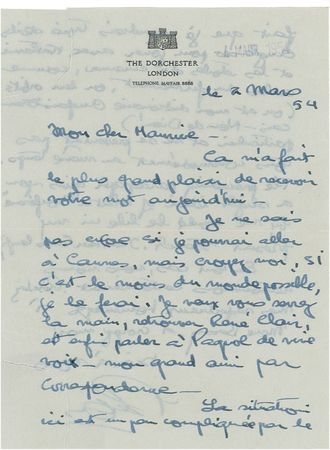 THE DORCHESTER
LONDON
TELEPHONE MAYFAIR 8888
le 2 Mars
54
Mon cher Maurice -
Ça m'a fait
le plus grand plaisir de recevoir
votre mot aujourd'hui -
Je ne sais
pas encore si je pourrai aller
à Cannes, mais croyez moi, si
c'est le moins du monde possible,
je le ferai. Je veux vous serrer
la main, retrouver René Clair,
et enfin parler à Pagnol de vive
voix - mon grand ami par
correspondance -
La situation
ici est un peu compliquée par le